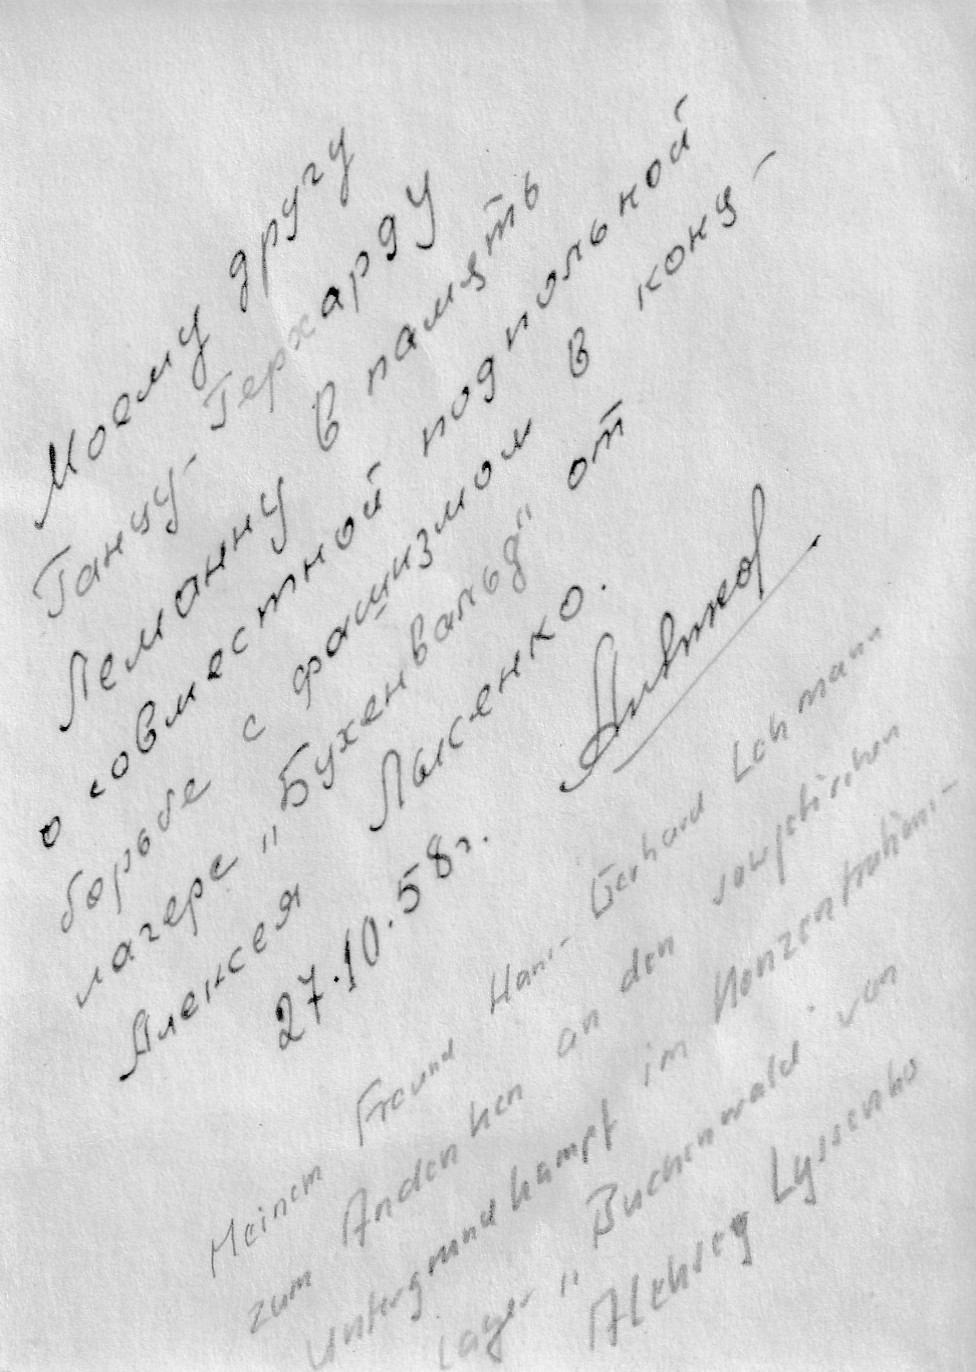 Моему другу
Ганцу-Герхарду
Леманну в память
о совместной подпольной
борьбе с фашизмом в конц-
лагере "Бухенвальд" от
Алексея Лысенко.
27.10.58г.
Meinem Freund Hans-Gerhard Lehmann
zum Andenken an den sowjetischen
Untergrundkampf im Konzentrations-
lager "Buchenwald" von
Aleksey Lyssenko